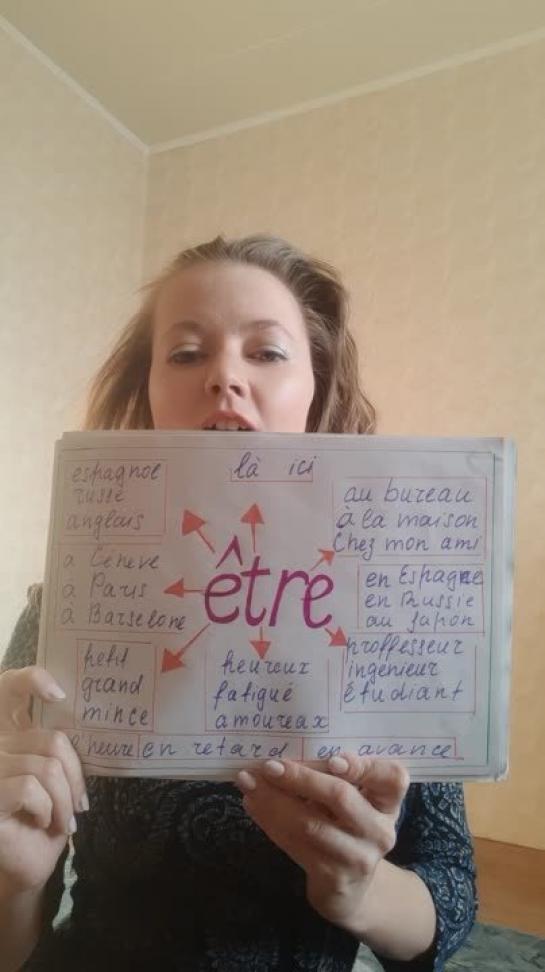 là ici
espagnol
russe
anglais
au bureau
à la maison
Chez mon ami
à Géneve
à Paris
à Barselone
être
en Espagne
en Russie
au Japon
petit
grand
mince
heureux
fatigué
amoureax
proffesseur
ingénieur
étudiant
l'heure en retard en avance